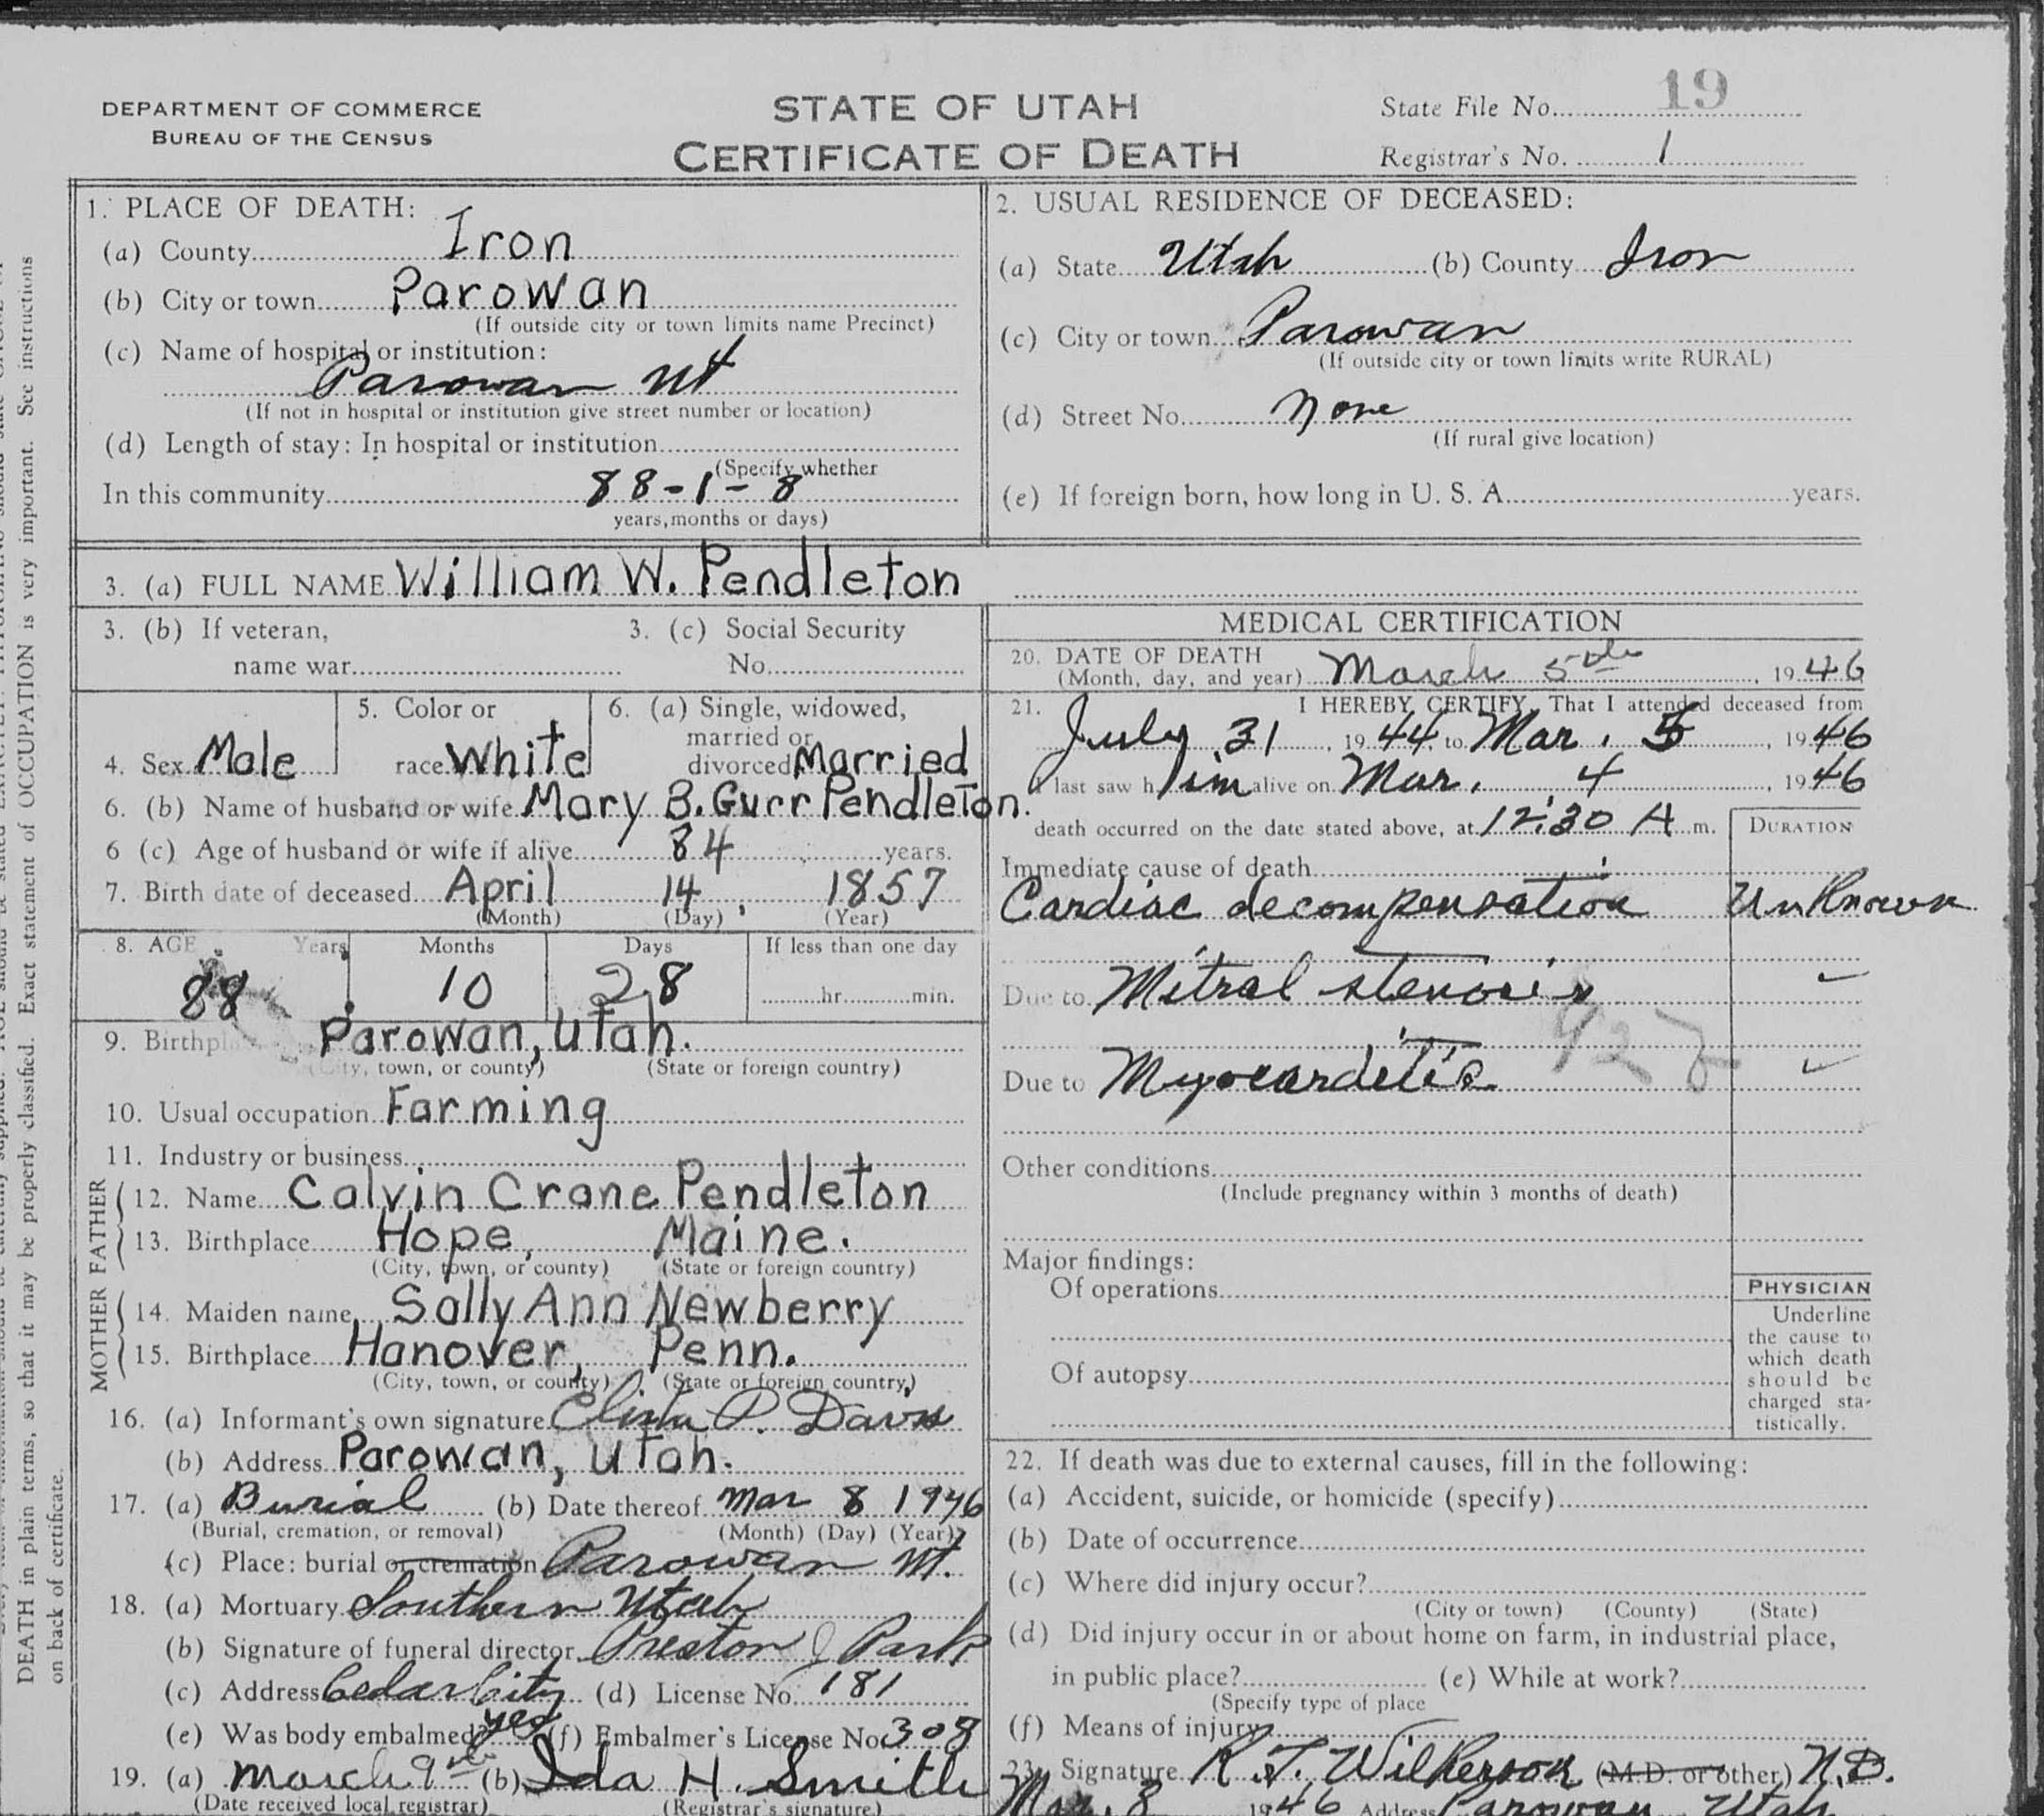 DEPARTMENT OF COMMERCE
BUREAU OF THE CENSUS
STATE OF UTAH
CERTIFICATE OF DEATH
State File No. 19
Registrar's No. 1
1. PLACE OF DEATH:
(a) County Iron
(b) City or town Parowan
(If outside city or town limits name Precinct)
(c) Name of hospital or institution:
Parowan Ut
(If not in hospital or institution give street number or location)
(d) Length of stay: In hospital or institution
(Specify whether
In this community 88-1-8
years, months or days)
2. USUAL RESIDENCE OF DECEASED:
(a) State Utah (b) County Iron
(c) City or town Parowan
(If outside city or town limits write RURAL)
(d) Street No. None
(If rural give location)
(e) If foreign born, how long in U. S. A. years.
3. (a) FULL NAME William W. Pendleton
3. (b) If veteran,
name war
3. (c) Social Security
No.
4. Sex Male
5. Color or
race White
6. (a) Single, widowed,
married or
divorced Married
6. (b) Name of husband or wife Mary B. Gurr Pendleton.
6 (c) Age of husband or wife if alive 84 years.
7. Birth date of deceased April 14, 1857
(Month) (Day) (Year)
8. AGE Years Months Days If less than one day
88 10 28 hr. min.
9. Birthpl Parowan, Utah.
(City, town, or county) (State or foreign country)
10. Usual occupation Farming
11. Industry or business
FATHER
12. Name Calvin Crane Pendleton
13. Birthplace Hope, Maine.
(City, town, or county) (State or foreign country)
MOTHER
14. Maiden name Sally Ann Newberry
15. Birthplace Hanover, Penn.
(City, town, or county) (State or foreign country)
16. (a) Informant's own signature P. Davis
(b) Address Parowan, Utah.
17. (a) Burial (b) Date thereof Mar 8 1946
(Burial, cremation, or removal) (Month) (Day) (Year)
(c) Place: burial or cremation Parowan Ut.
18. (a) Mortuary Southern Utah
(b) Signature of funeral director Preston J Park
(c) Address Cedar City (d) License No. 181
(e) Was body embalmed? yes (f) Embalmer's License No. 308
19. (a) March 9th (b) Ida H. Smith
(Date received local registrar) (Registrar's signature)
MEDICAL CERTIFICATION
20. DATE OF DEATH
(Month, day, and year) March 5th, 1946
21. I HEREBY CERTIFY, That I attended deceased from
July 31, 1944 to Mar. 5, 1946
I last saw him alive on Mar. 4, 1946
death occurred on the date stated above, at 12:30 A m.
DURATION
Immediate cause of death
Cardiac decompensation Unknown
Due to Mitral stenosis
Due to Myocarditis
Other conditions
(Include pregnancy within 3 months of death)
Major findings:
Of operations
Of autopsy
PHYSICIAN
Underline
the cause to
which death
should be
charged sta-
tistically.
22. If death was due to external causes, fill in the following:
(a) Accident, suicide, or homicide (specify)
(b) Date of occurrence
(c) Where did injury occur?
(City or town) (County) (State)
(d) Did injury occur in or about home on farm, in industrial place,
in public place? (e) While at work?
(Specify type of place
(f) Means of injury
23. Signature R. T. Wilkerson (M.D. or other) N.D.
Mar. 8 1946 Address Parowan, Utah
DEATH in plain terms, so that it may be properly classified. Exact statement of OCCUPATION is very important. See instructions
on back of certificate.